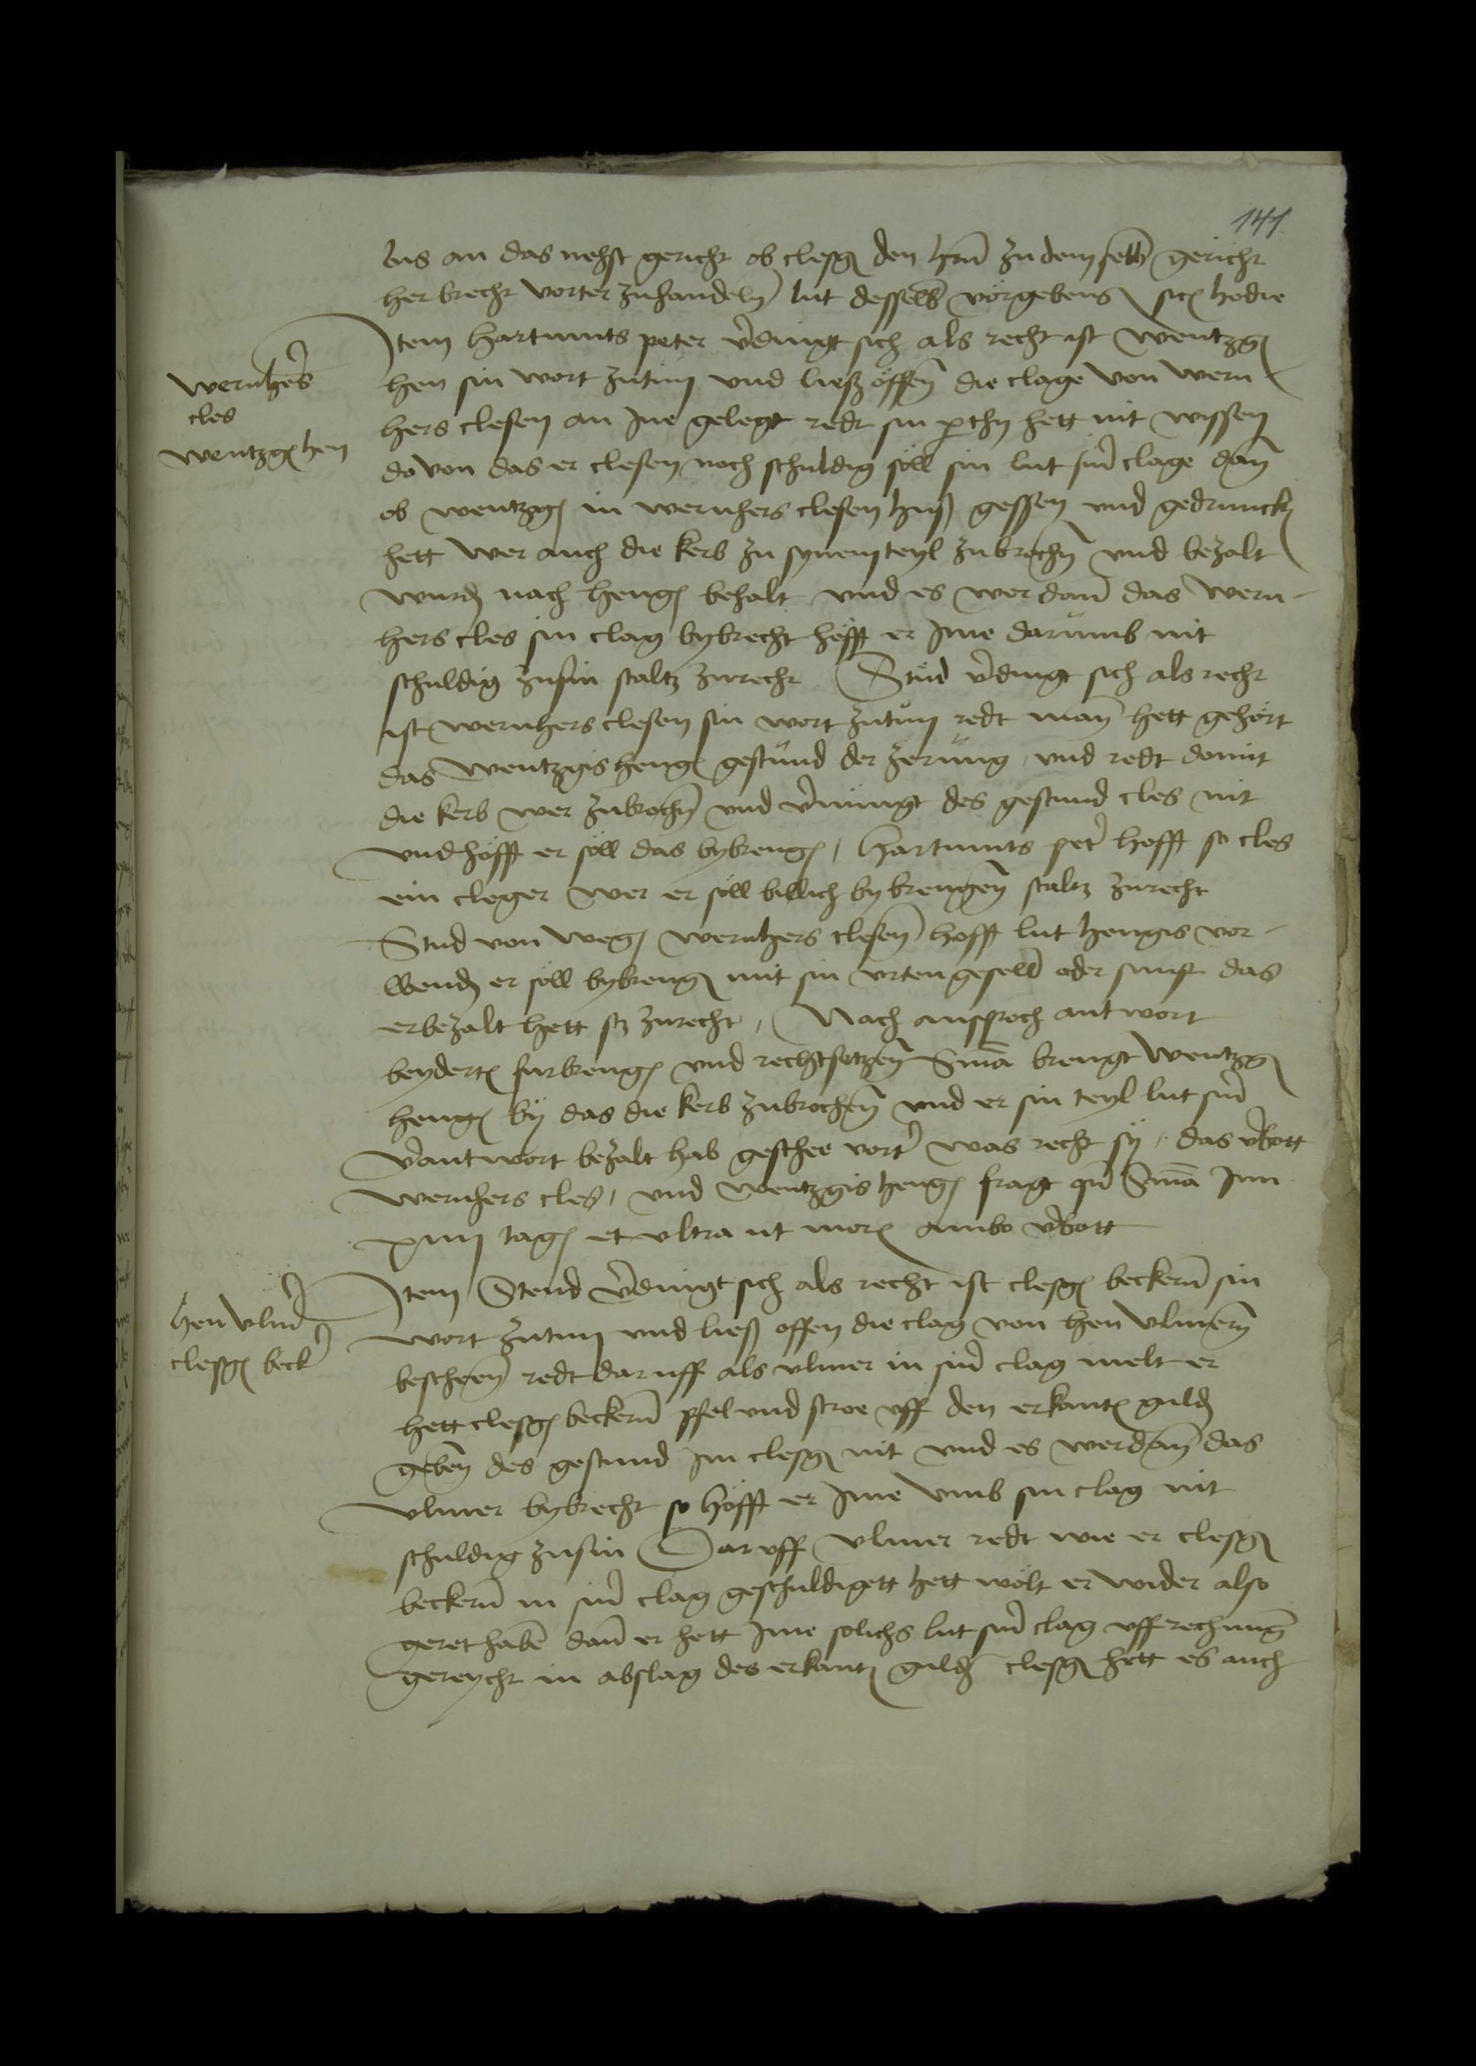 141
bis an das nehst gericht ob clesg den hrn zu dem selb gericht
her brecht vorter zuhandeln lut desselb vorgebens sic hodie
Item Hartmuts peter v̓dingt sich als recht ist wentzg
Wernhers
cles
Wentzg hen
hen sin wort zutun und liesz offen die clage von wern
hers clesen an Ine gelegt redt sin p̱thy hett nit wissen
do von das er clesen noch schuldig soll sin lut sin̓ clage dan
ob wentzg in wernhers clesen husz gessen und gedrunck
hett wer auch die kerb zu synem teyl zubrochn und bezalt
wurd nach heng behalt und es wer dan das wern-
hers cles sin clag bybrecht hofft er Ime darumb nit
schuldig zusin staltz zurecht Stud v̓dingt sich als recht
ist wernhers clesen sin wort zutun redt man hett gehort
das wentzgis heng gestund der zerung und redt domit
die kerb wer zubrochn und v̓nüngt des gestund cles nit
und hofft er soll das bybreng, Hartmuts pet̓ hofft so cles
ein cleger wer er soll billich bybrengen staltz zurecht
Stud von weg wernhers clesen hofft lut hengis vor-
wend er soll bybreng mit sin urten geselln oder sunst das
er bezalt hett stz zurecht, Nach ansproch antwort
beydert furbreng und rechtsetzen Sma brengt Wentzg
heng by das die kerb zubrochen und er sin teyl lut sin̓
v̓antwort bezalt hab geschee vort̓ was recht sy, das v̓bott
wernhers cles, und wentzgis heng fragt qn̄ Sma Inn
xiiii tag et ultra ut mor ambo v̓bott
Hen Ulm̓
clesg beck̓
Item Stud v̓dingt sich als recht ist clesg beckern sin
wort zutun und liesz offen die clag von hen Ulmern
bescheen redt daruff als ulmer in sin̓ clag melt er
hett clesg beckern pfel und stroe uff den erkant guld
geben des gestund Im clesg nit und es wer dan das
ulmer bybrecht so hofft er Ime umb sin clag nit
schuldig zusin Daruff ulmer redt wie er clesg
beckern in sin̓ clag geschuldigett hett wolt er wider also
geret haben dan er hett Ime solichs lut sin̓ clag uff rechnung
gereycht in abslag des erkant guld clesg hett es auch